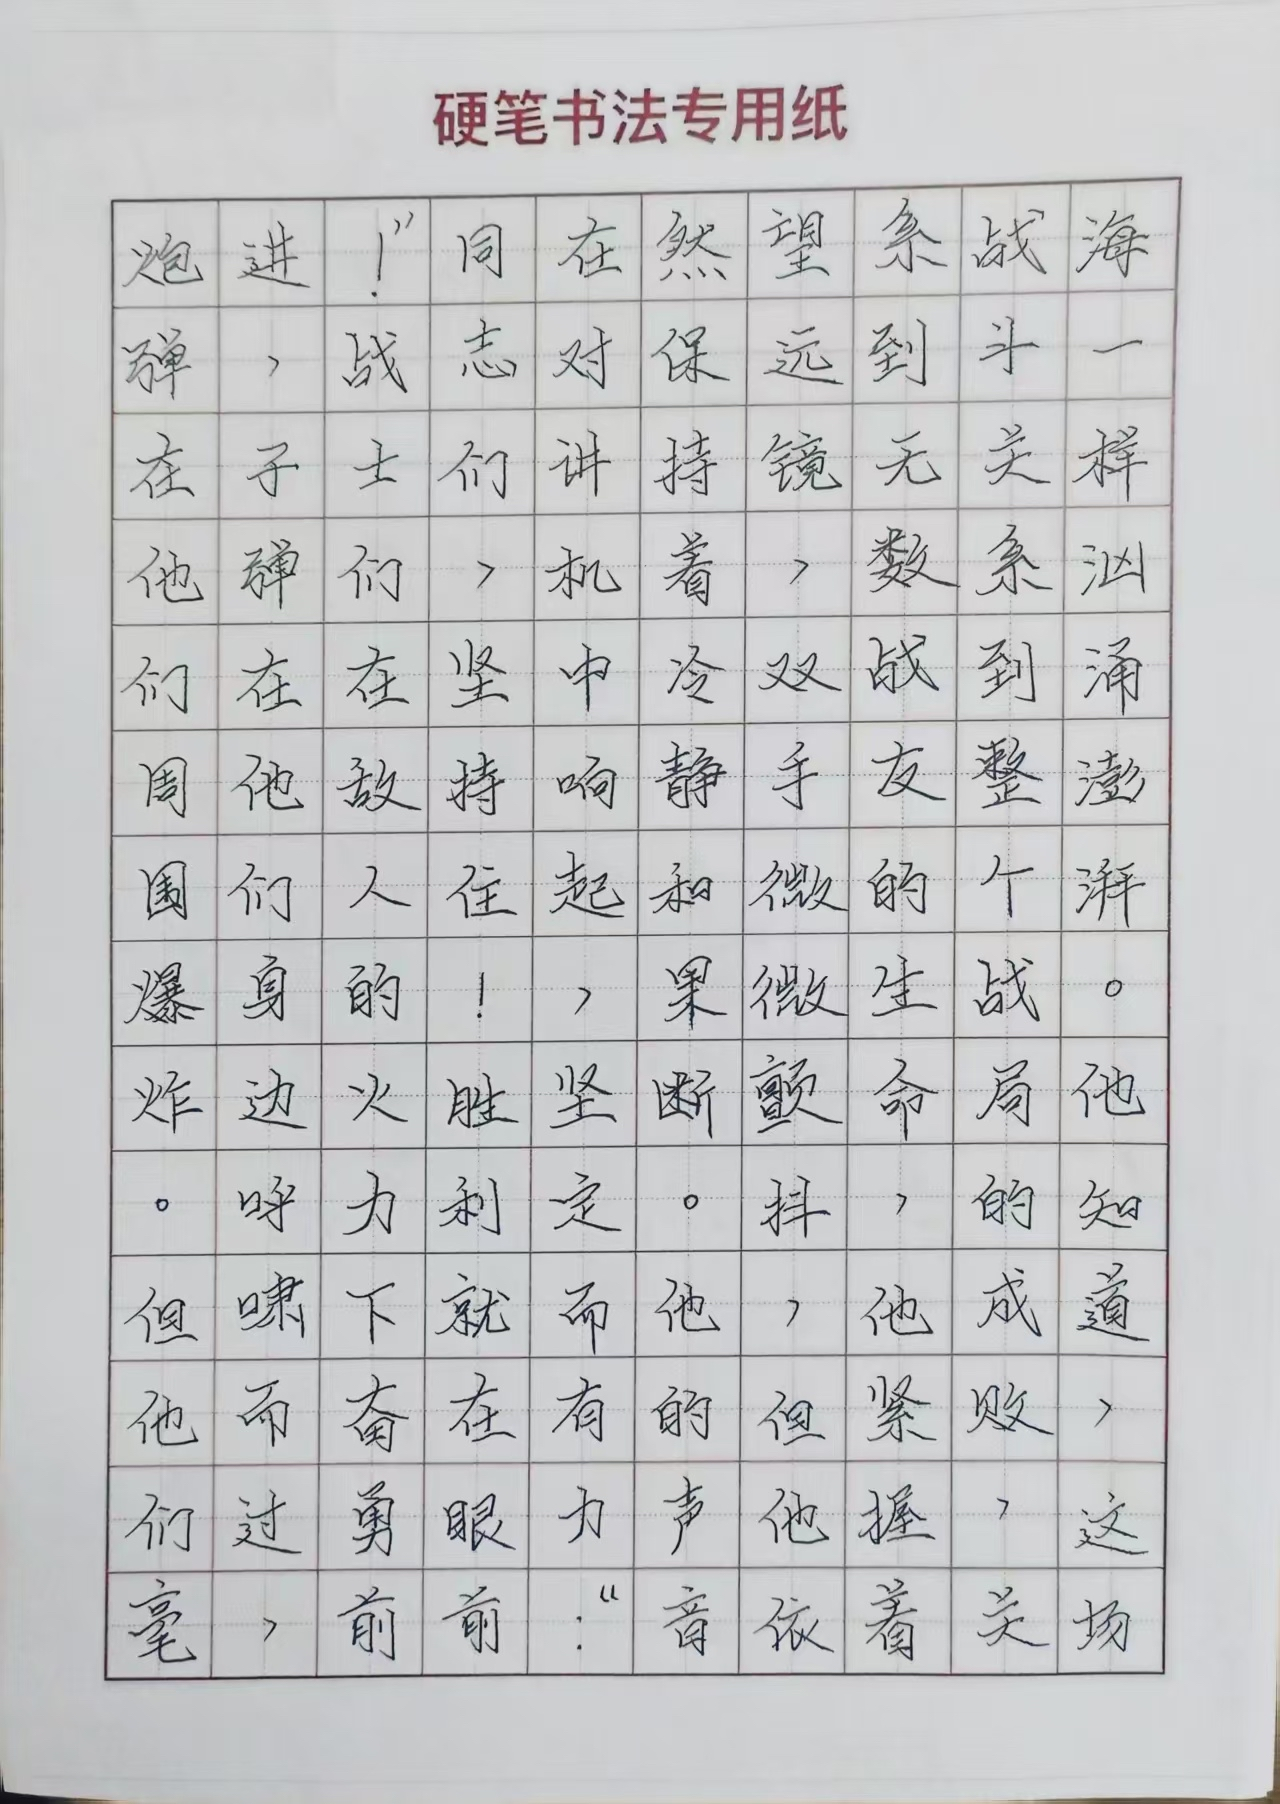 硬笔书法专用纸
海一样汹涌澎湃。他知道，这场
战斗关系到整个战局的成败，关
系到无数战友的生命，他紧握着
望远镜，双手微微颤抖，但他依
然保持着冷静和果断。他的声音
在对讲机中响起，坚定而有力：“
同志们，坚持住！胜利就在眼前
！”战士们在敌人的火力下奋勇前
进，子弹在他们身边呼啸而过，
炮弹在他们周围爆炸。但他们毫